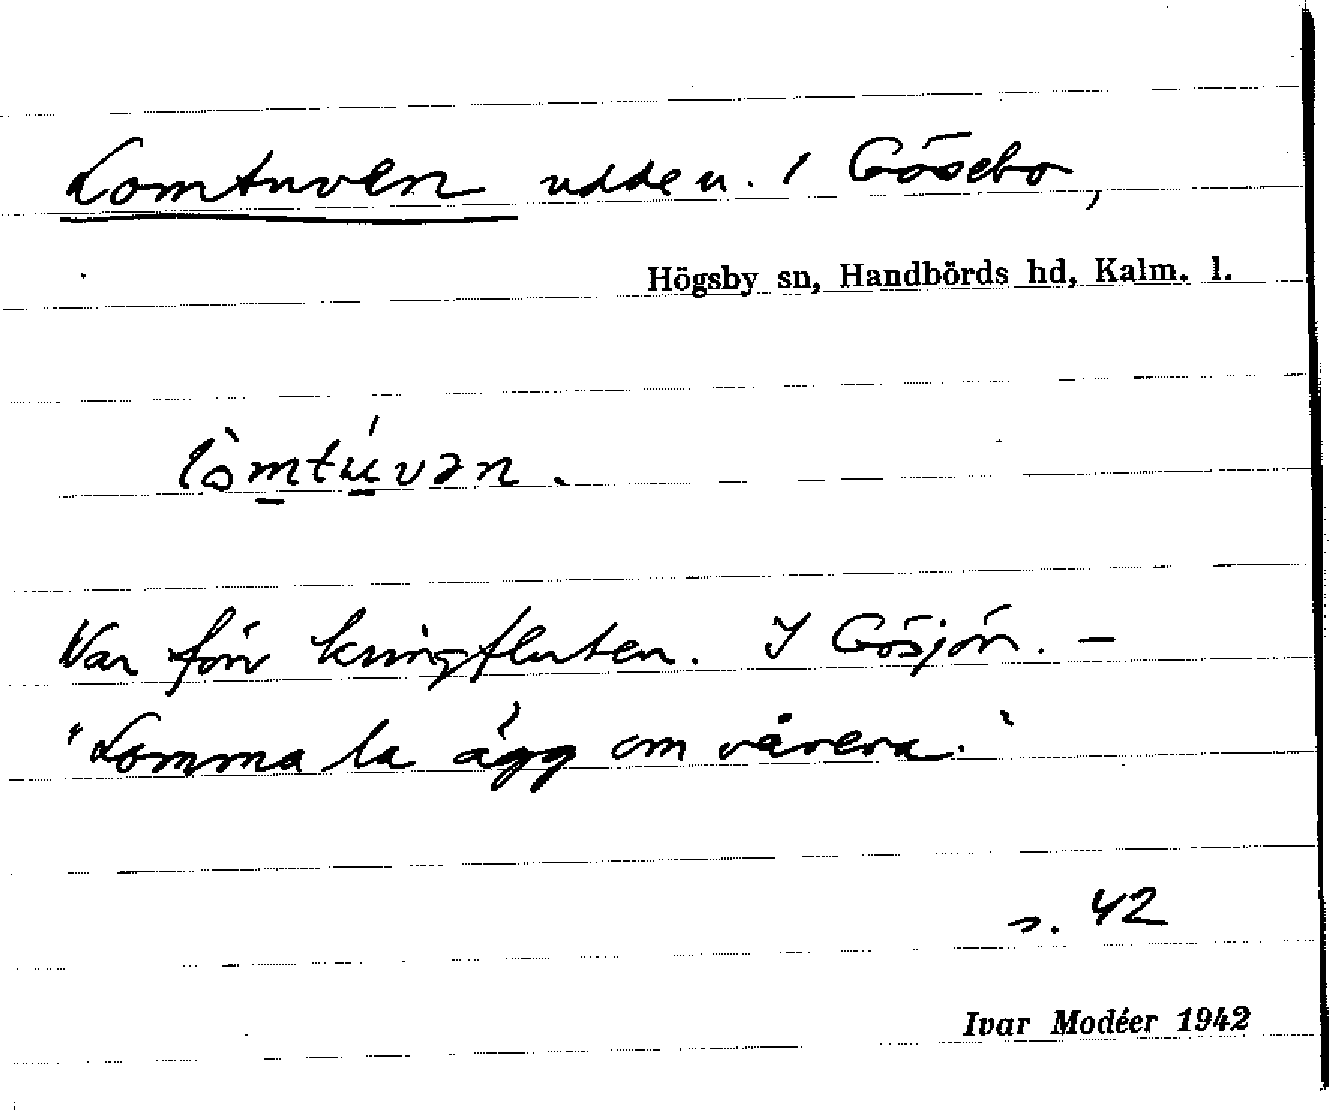 Lomtuven udde u. 1 Gösebo,
Högsby sn, Handbörds hd, Kalm. l.
lòmtúvən.
Var förr kringfluten. I Gösjön. –
"Lomma la ägg om vårera."
s. 42
Ivar Modéer 1942